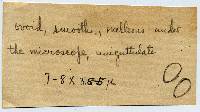 ovoid, smooth, melleus under
the microscope, uniguttulate
7-8 X 5.5 µ